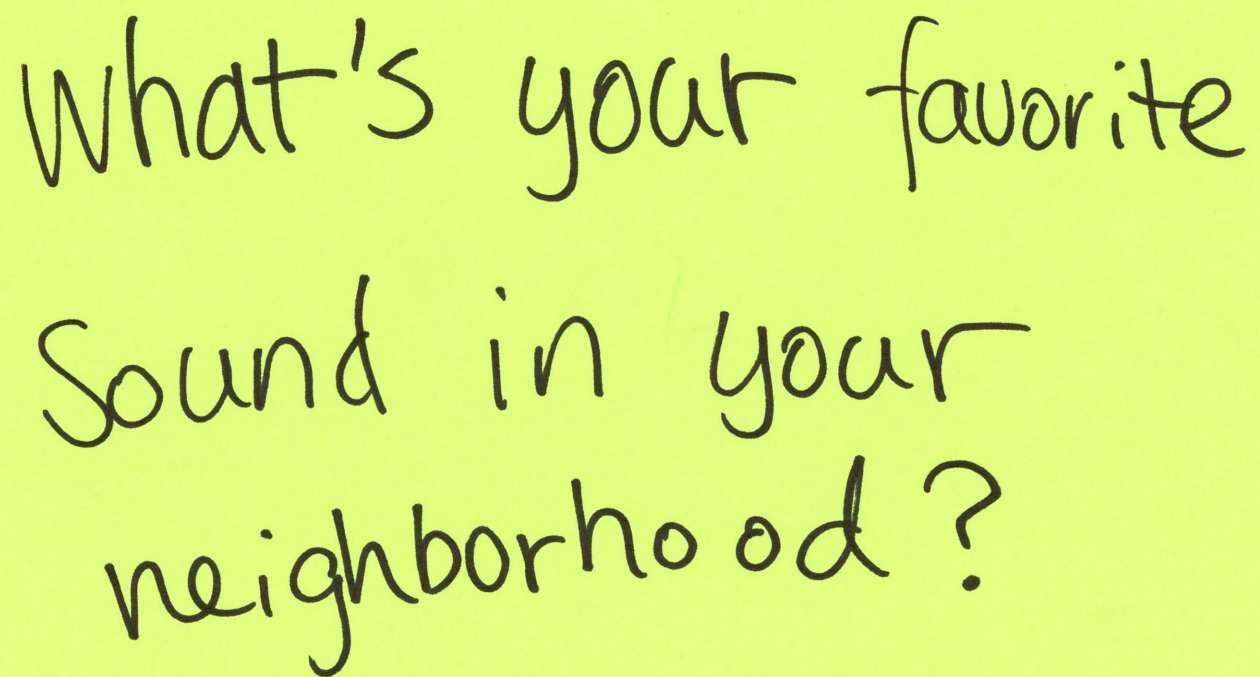 What's your favorite
Sound in your
neighborhood?